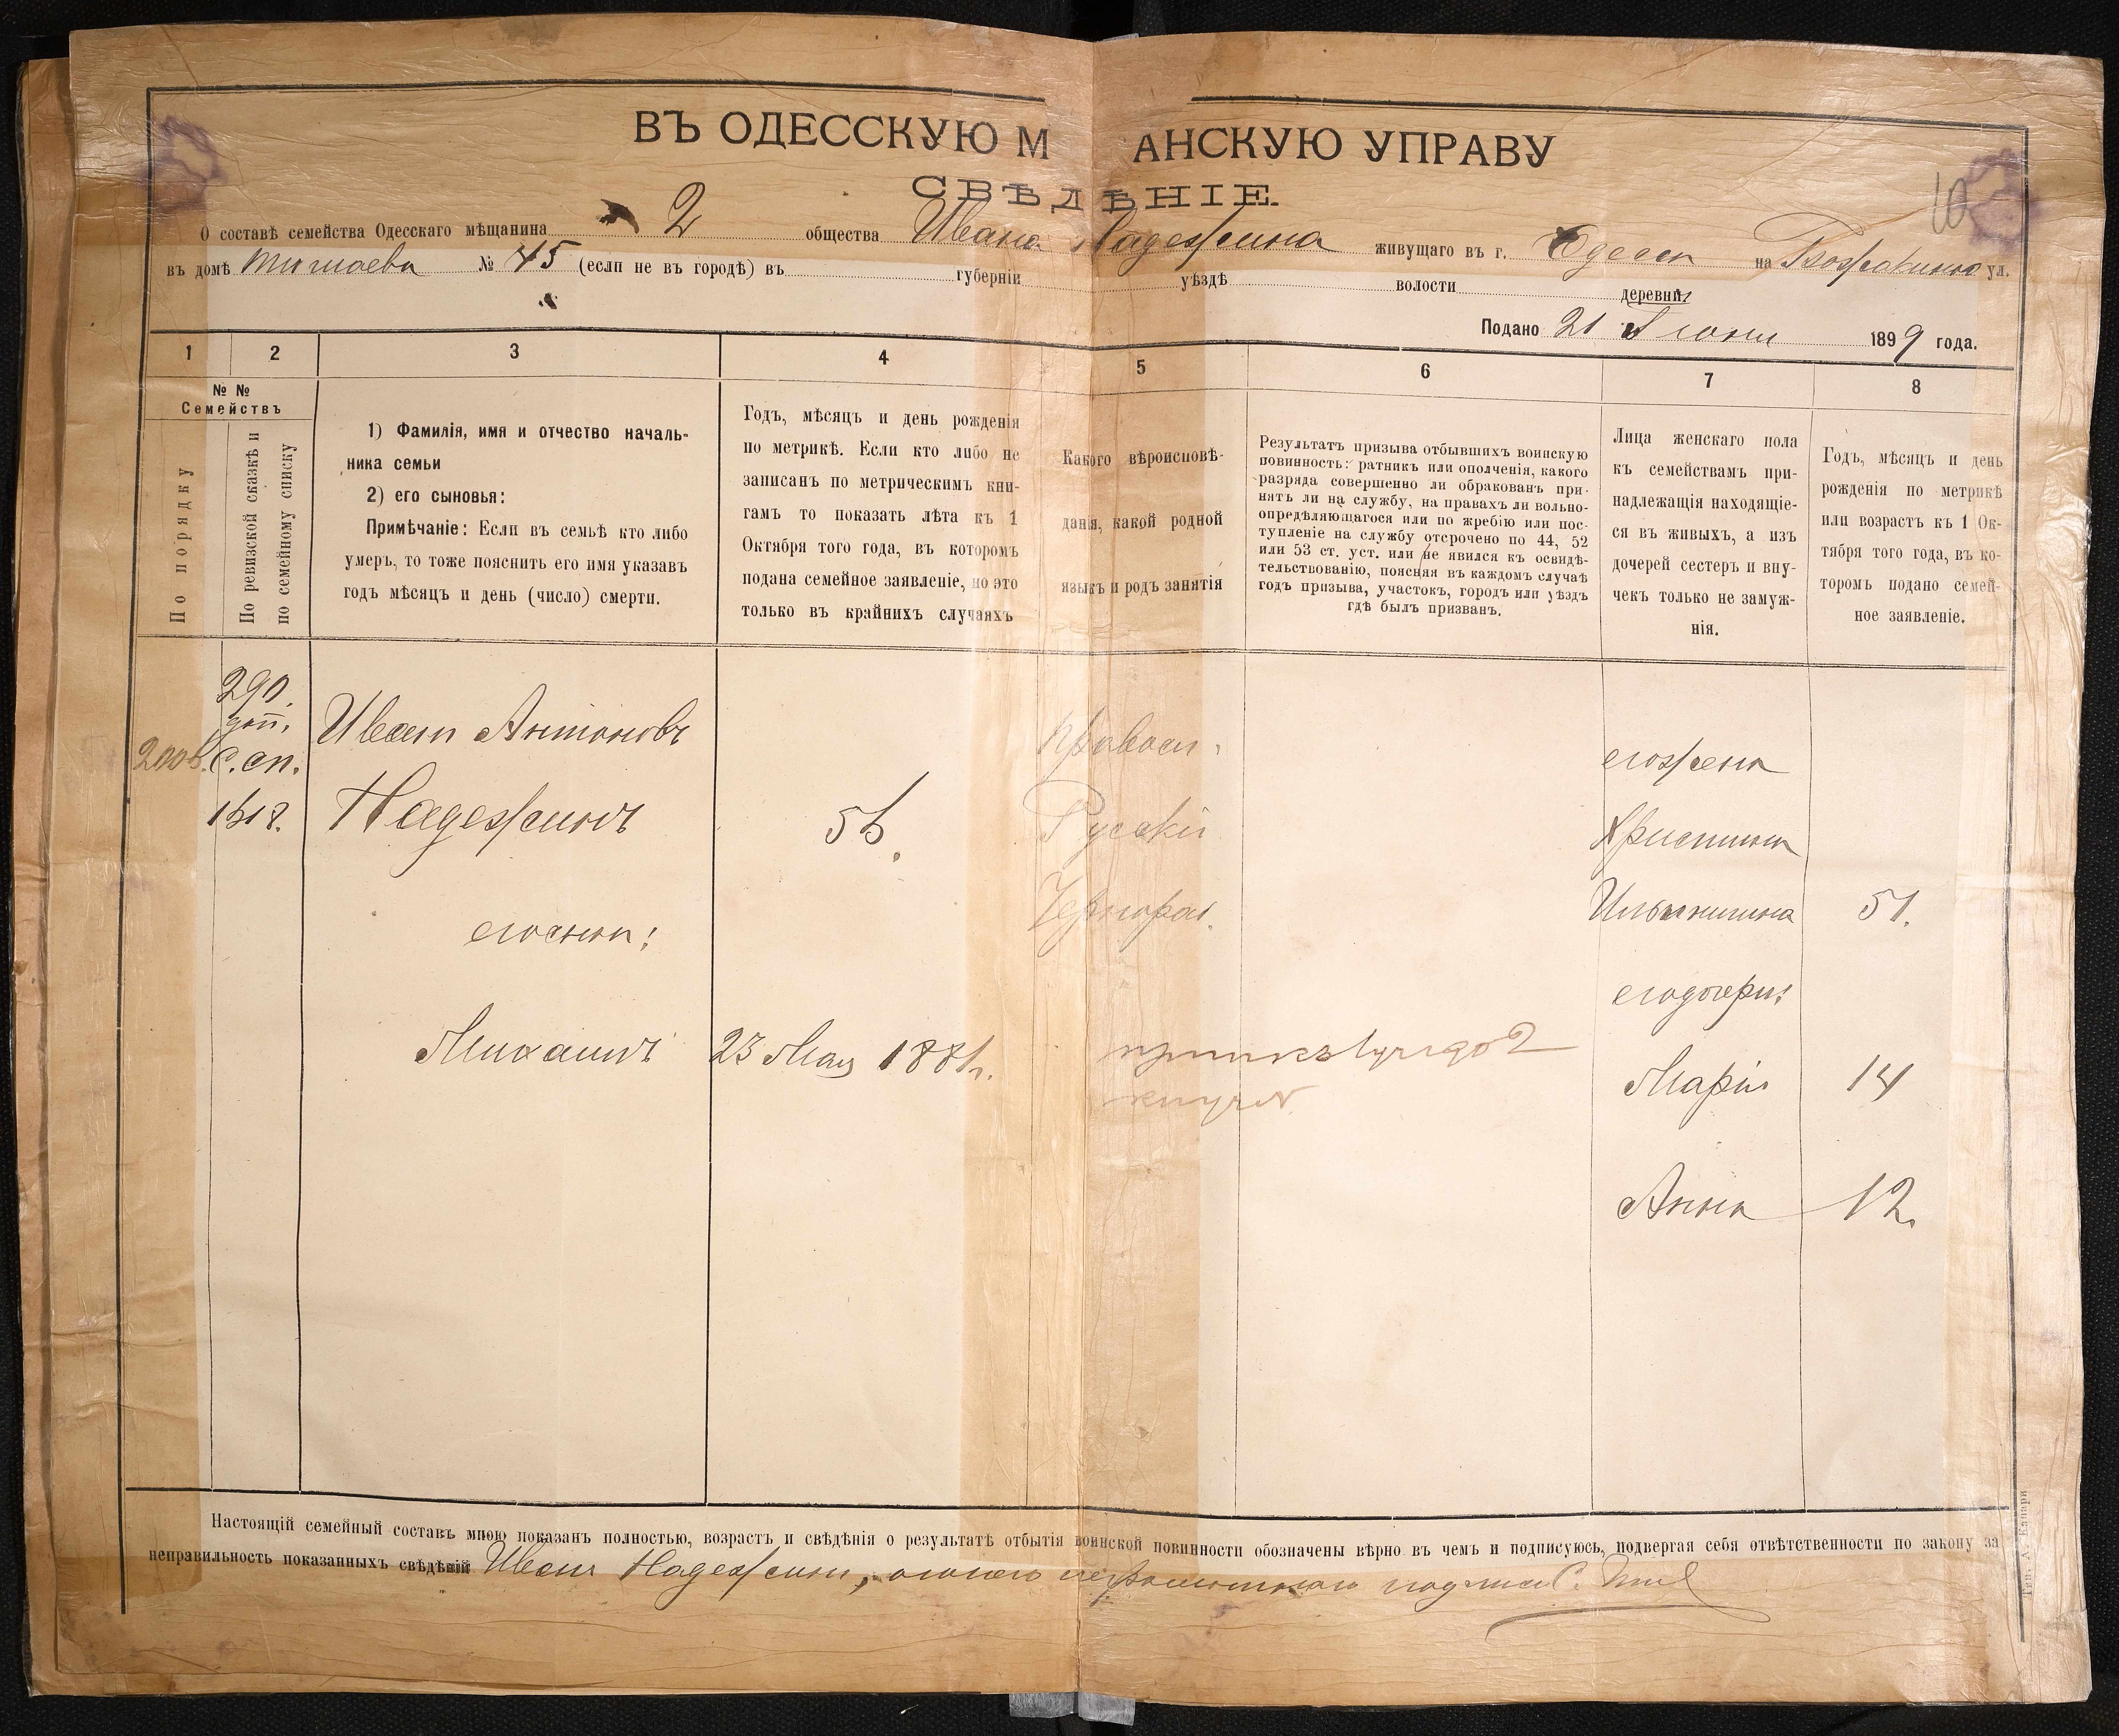 ВЪ ОДЕССКУЮ М АНСКУЮ УПРАВУ
СВѢДѢНІЕ.
10
О составѣ семейства Одесскаго мѣщанина 2 общества Ивана Надежина живущаго въ г. Одессѣ на ул.
въ домѣ № 45 (если не въ городѣ) въ губерніи уѣздѣ волости деревни
Подано 21 Іюня 1899 года.
1 2 3 4 5 6 7 8
№ №
Семействъ
По порядку
По ревизской сказкѣ и
по семейному списку
1) Фамилія, имя и отчество началь-
ника семьи
2) его сыновья:
Примѣчаніе: Если въ семьѣ кто либо
умеръ, то тоже пояснить его имя указавъ
годъ мѣсяцъ и день (число) смерти.
Годъ, мѣсяцъ и день рожденія
по метрикѣ. Если кто либо не
записанъ по метрическимъ кни-
гамъ то показать лѣта къ 1
Октября того года, въ которомъ
подана семейное заявленіе, но это
только въ крайнихъ случаяхъ
Какого вѣроисповѣ-
данія, какой родной
языкъ и родъ занятія
Результатъ призыва отбывшихъ воинскую
повинность: ратникъ или ополченія, какого
разряда совершенно ли обракованъ при-
нятъ ли на службу, на правахъ ли вольно-
опредѣляющагося или по жребію или пос-
тупленіе на службу отсрочено по 44, 52
или 53 ст. уст. или не явился къ освидѣ-
тельствованію, поясняя въ каждомъ случаѣ
годъ призыва, участокъ, городъ или уѣздъ
гдѣ былъ призванъ.
Лица женскаго пола
къ семействамъ при-
надлежащія находящіе-
ся въ живыхъ, а изъ
дочерей сестеръ и вну-
чекъ только не замуж-
нія.
Годъ, мѣсяцъ и день
рожденія по метрикѣ
или возрастъ къ 1 Ок-
тября того года, въ ко-
торомъ подано семей-
ное заявленіе.
290
доп.
с. сп.
Иванъ Антоновъ
Надежинъ
Правосл.
Русскій
Чернораб.
его жена
Христина
51.
его сынъ:
его дочери:
Михаилъ 23 Мая 1881 г.
Марія 14
Анна 12
Настоящій семейный составъ мною показанъ полностью, возрастъ и свѣдѣнія о результатѣ отбытія воинской повинности обозначены вѣрно въ чемъ и подписуюсь, подвергая себя отвѣтственности по закону за
неправильность показанныхъ свѣдѣній Иванъ Надежинъ,